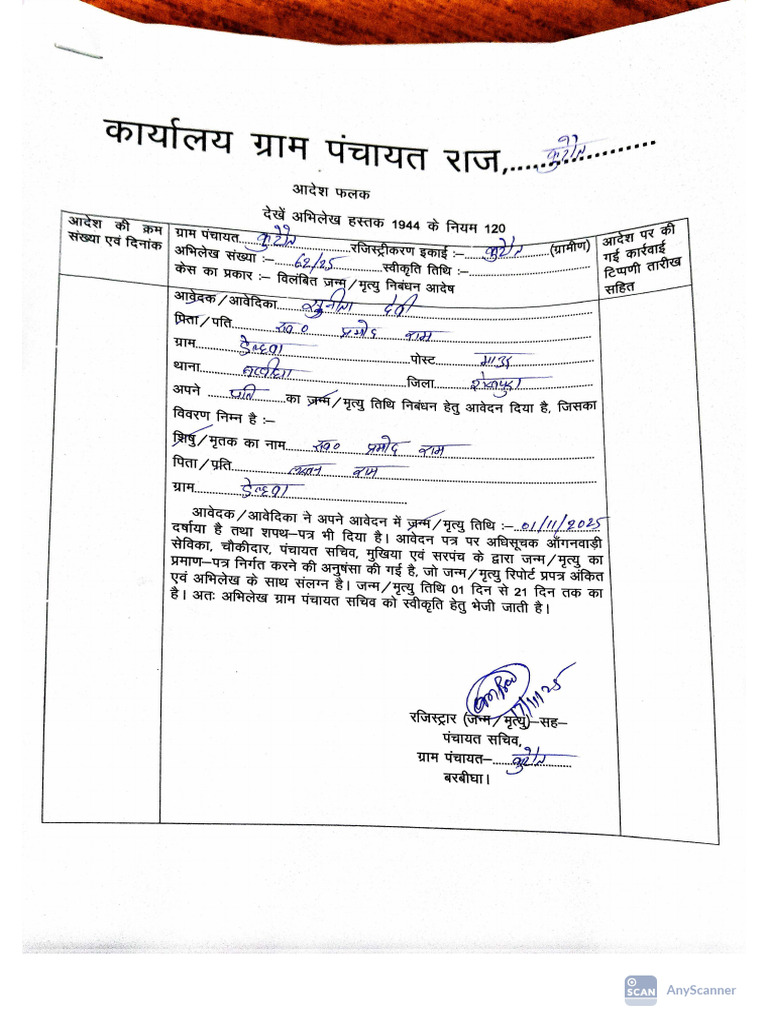 कार्यालय ग्राम पंचायत राज,....................
आदेश फलक
देखें अभिलेख हस्तक 1944 के नियम 120
आदेश की क्रम संख्या एवं दिनांक
ग्राम पंचायत....................रजिस्ट्रीकरण इकाई :–....................(ग्रामीण)
अभिलेख संख्या :–....62/25....स्वीकृति तिथि :–....................
केस का प्रकार :– विलंबित जन्म/मृत्यु निबंधन आदेष
आदेश पर की गई कार्रवाई टिप्पणी तारीख सहित
आवेदक/आवेदिका....सुनीता देवी
पिता/पति....स्व० प्रमोद राम
ग्राम....................पोस्ट....................
थाना....................जिला....शेखपुरा
अपने ....पति....का जन्म/मृत्यु तिथि निबंधन हेतु आवेदन दिया है, जिसका
विवरण निम्न है :–
शिषु/मृतक का नाम....स्व० प्रमोद राम
पिता/प्रति....लखन राम
ग्राम....................
आवेदक/आवेदिका ने अपने आवेदन में जन्म/मृत्यु तिथि :–..01/11/2025
दर्षाया है तथा शपथ–पत्र भी दिया है। आवेदन पत्र पर अधिसूचक आँगनवाड़ी
सेविका, चौकीदार, पंचायत सचिव, मुखिया एवं सरपंच के द्वारा जन्म/मृत्यु का
प्रमाण–पत्र निर्गत करने की अनुषंसा की गई है, जो जन्म/मृत्यु रिपोर्ट प्रपत्र अंकित
एवं अभिलेख के साथ संलग्न है। जन्म/मृत्यु तिथि 01 दिन से 21 दिन तक का
है। अतः अभिलेख ग्राम पंचायत सचिव को स्वीकृति हेतु भेजी जाती है।
17/11/25
रजिस्ट्रार (जन्म/मृत्यु)–सह–
पंचायत सचिव,
ग्राम पंचायत–....................
बरबीघा।
SCAN AnyScanner